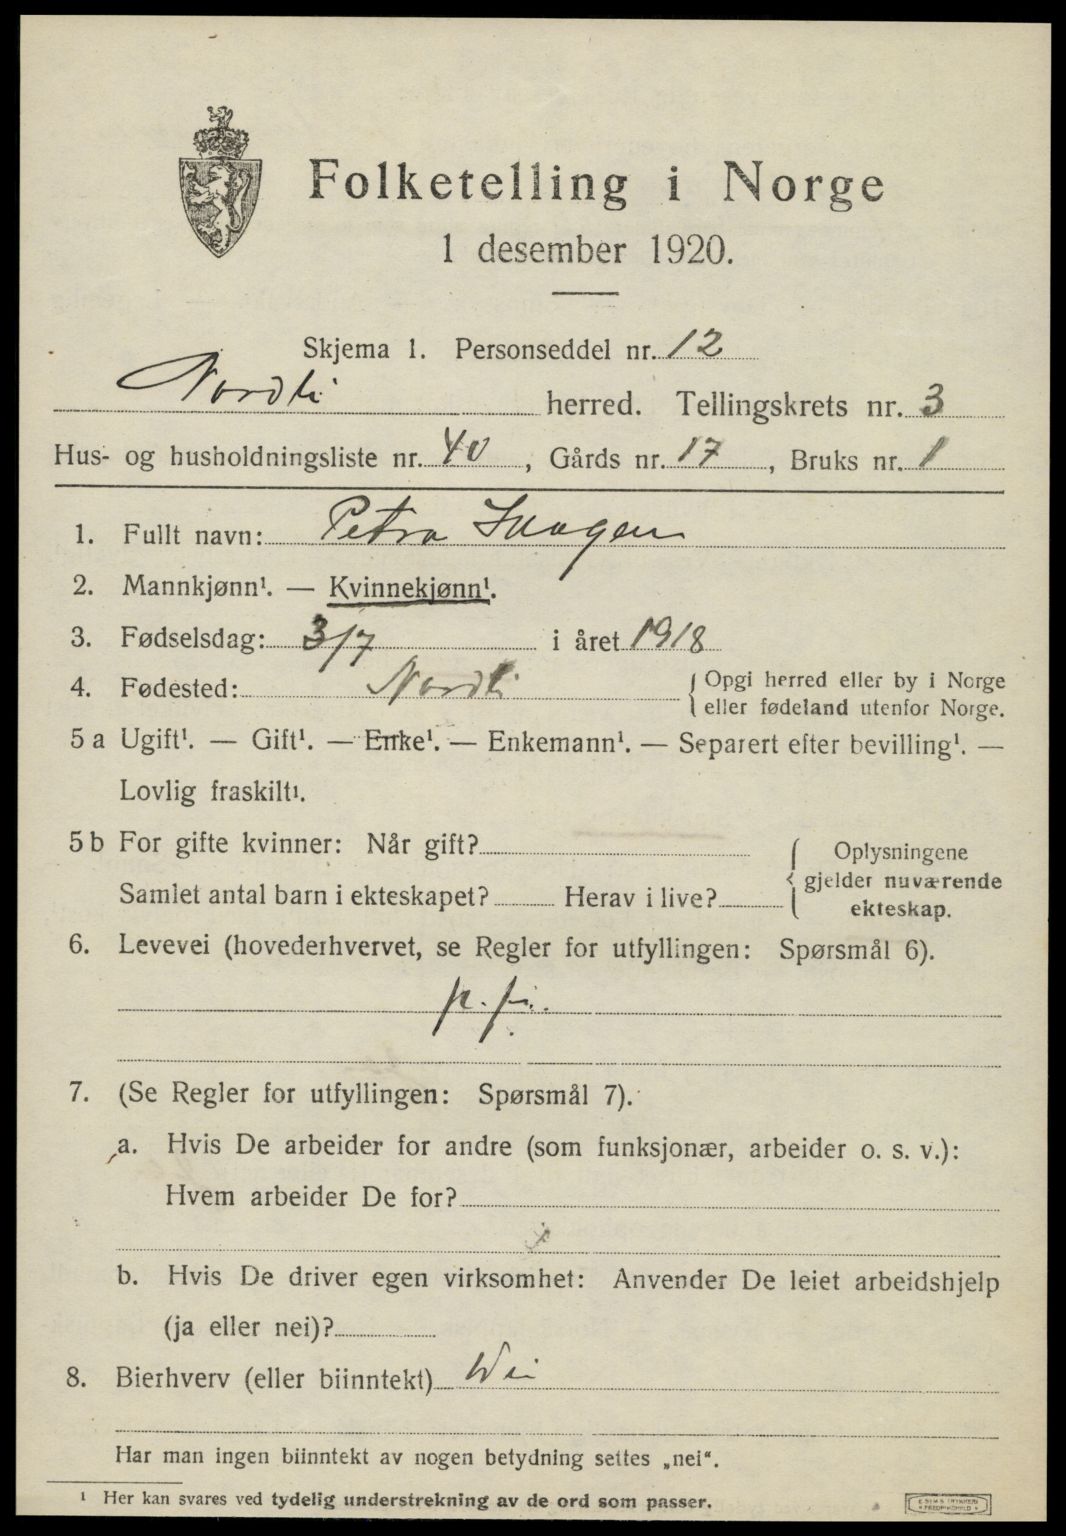 Folketelling i Norge
1 desember 1920.
Skjema 1. Personseddel nr. 12
Nordli herred. Tellingskrets nr. 3
Hus- og husholdningsliste nr. 40, Gårds nr. 17, Bruks nr. 1
1. Fullt navn: Petra Skogen
2. Mannkjønn¹. — Kvinnekjønn¹.
3. Fødselsdag: 3/7 i året 1918
4. Fødested: Nordli { Opgi herred eller by i Norge
eller fødeland utenfor Norge.
5 a Ugift¹. — Gift¹. — Enke¹. — Enkemann¹. — Separert efter bevilling¹. —
Lovlig fraskilt¹.
5 b For gifte kvinner: Når gift? { Oplysningene
Samlet antal barn i ekteskapet? Herav i live? gjelder nuværende
ekteskap.
6. Levevei (hovederhvervet, se Regler for utfyllingen: Spørsmål 6).
7. (Se Regler for utfyllingen: Spørsmål 7).
a. Hvis De arbeider for andre (som funksjonær, arbeider o. s. v.):
Hvem arbeider De for?
b. Hvis De driver egen virksomhet: Anvender De leiet arbeidshjelp
(ja eller nei)?
8. Bierhverv (eller biinntekt) Nei
Har man ingen biinntekt av nogen betydning settes „nei“.
¹ Her kan svares ved tydelig understrekning av de ord som passer.